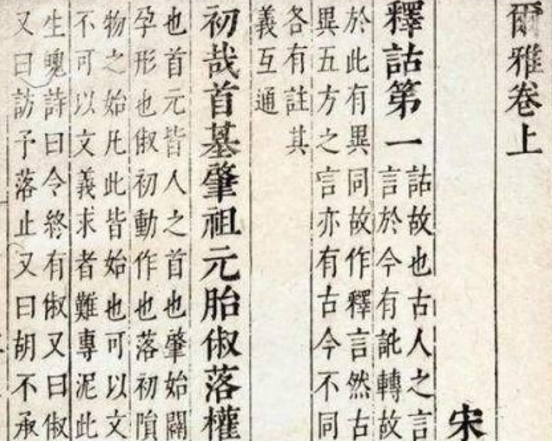 爾雅卷上
宋
釋詁第一
詁故也古人之言
言於今有訛轉故
於此有異同故作釋言然古
異五方之言亦有古今不同
各有註其
義互通
初哉首基肇祖元胎俶落權
也首元皆人之首也肇始闢
孕形也俶初動作也落初隕
物之始凡此皆始也可以文
不可以文義求者難專泥此
生魄詩曰令終有俶又曰俶
又曰訪予落止又曰胡不承